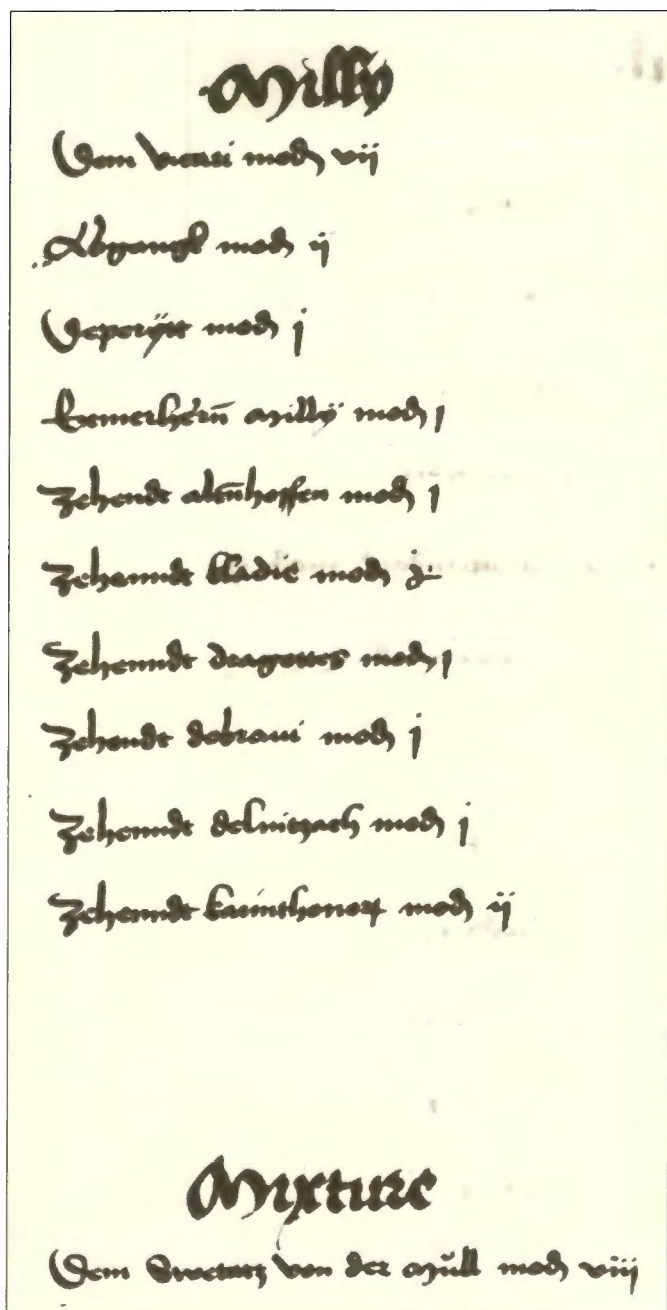 Milly
Dem vierai mod vij
Abgangk mod ij
Veperijtt mod j
kemerherñ Milly mod j
Zehendt altnhoffen mod j
Zehenndt kladie mod
Zehenndt dragottes mod j
Zehendt dobraui mod j
Zehenndt dolnitzach mod j
Zehenndt mod ij
Mixture
Dem von der Müll mod viij